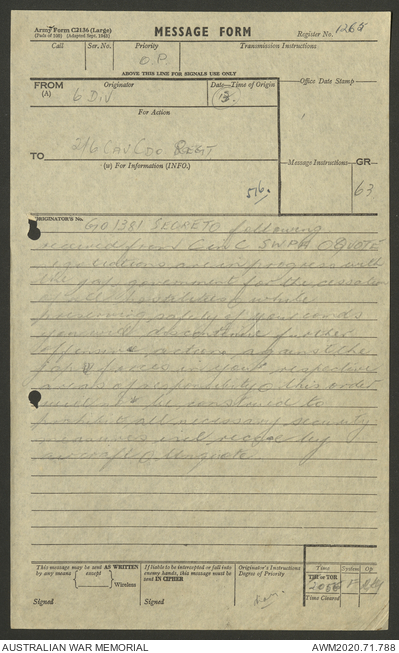 Army Form C2136 (Large)
(Pads of 100) (Adapted Sept. 1943)
MESSAGE FORM
Register No. 1265
Call Ser. No. Priority Transmission Instructions
O.P.
ABOVE THIS LINE FOR SIGNALS USE ONLY
FROM Originator Date—Time of Origin Office Date Stamp
(A) 6 DIV 13.
For Action
2/6 CAV CDO REGT
TO (W) For Information (INFO.) Message Instructions GR
516. 63
ORIGINATOR'S No. GO1381 SECRET O following
received from C in C SWPA O QUOTE
negotiations are in progress with
the jap government for the cessation
of hostilities while
preserving safety of your comds
you will discontinue further
offensive action against the
jap forces in your respective
areas of responsibility O this order
will not be construed to
prohibit all necessary security
measures and recce by
aircraft O Unquote
This message may be sent AS WRITTEN
by any means except Wireless
If liable to be intercepted or fall into
enemy hands, this message must be
sent IN CIPHER
Originator's Instructions
Degree of Priority
Time System Op
THI or TOR
Time Cleared
Signed Signed
AUSTRALIAN WAR MEMORIAL AWM2020.71.788